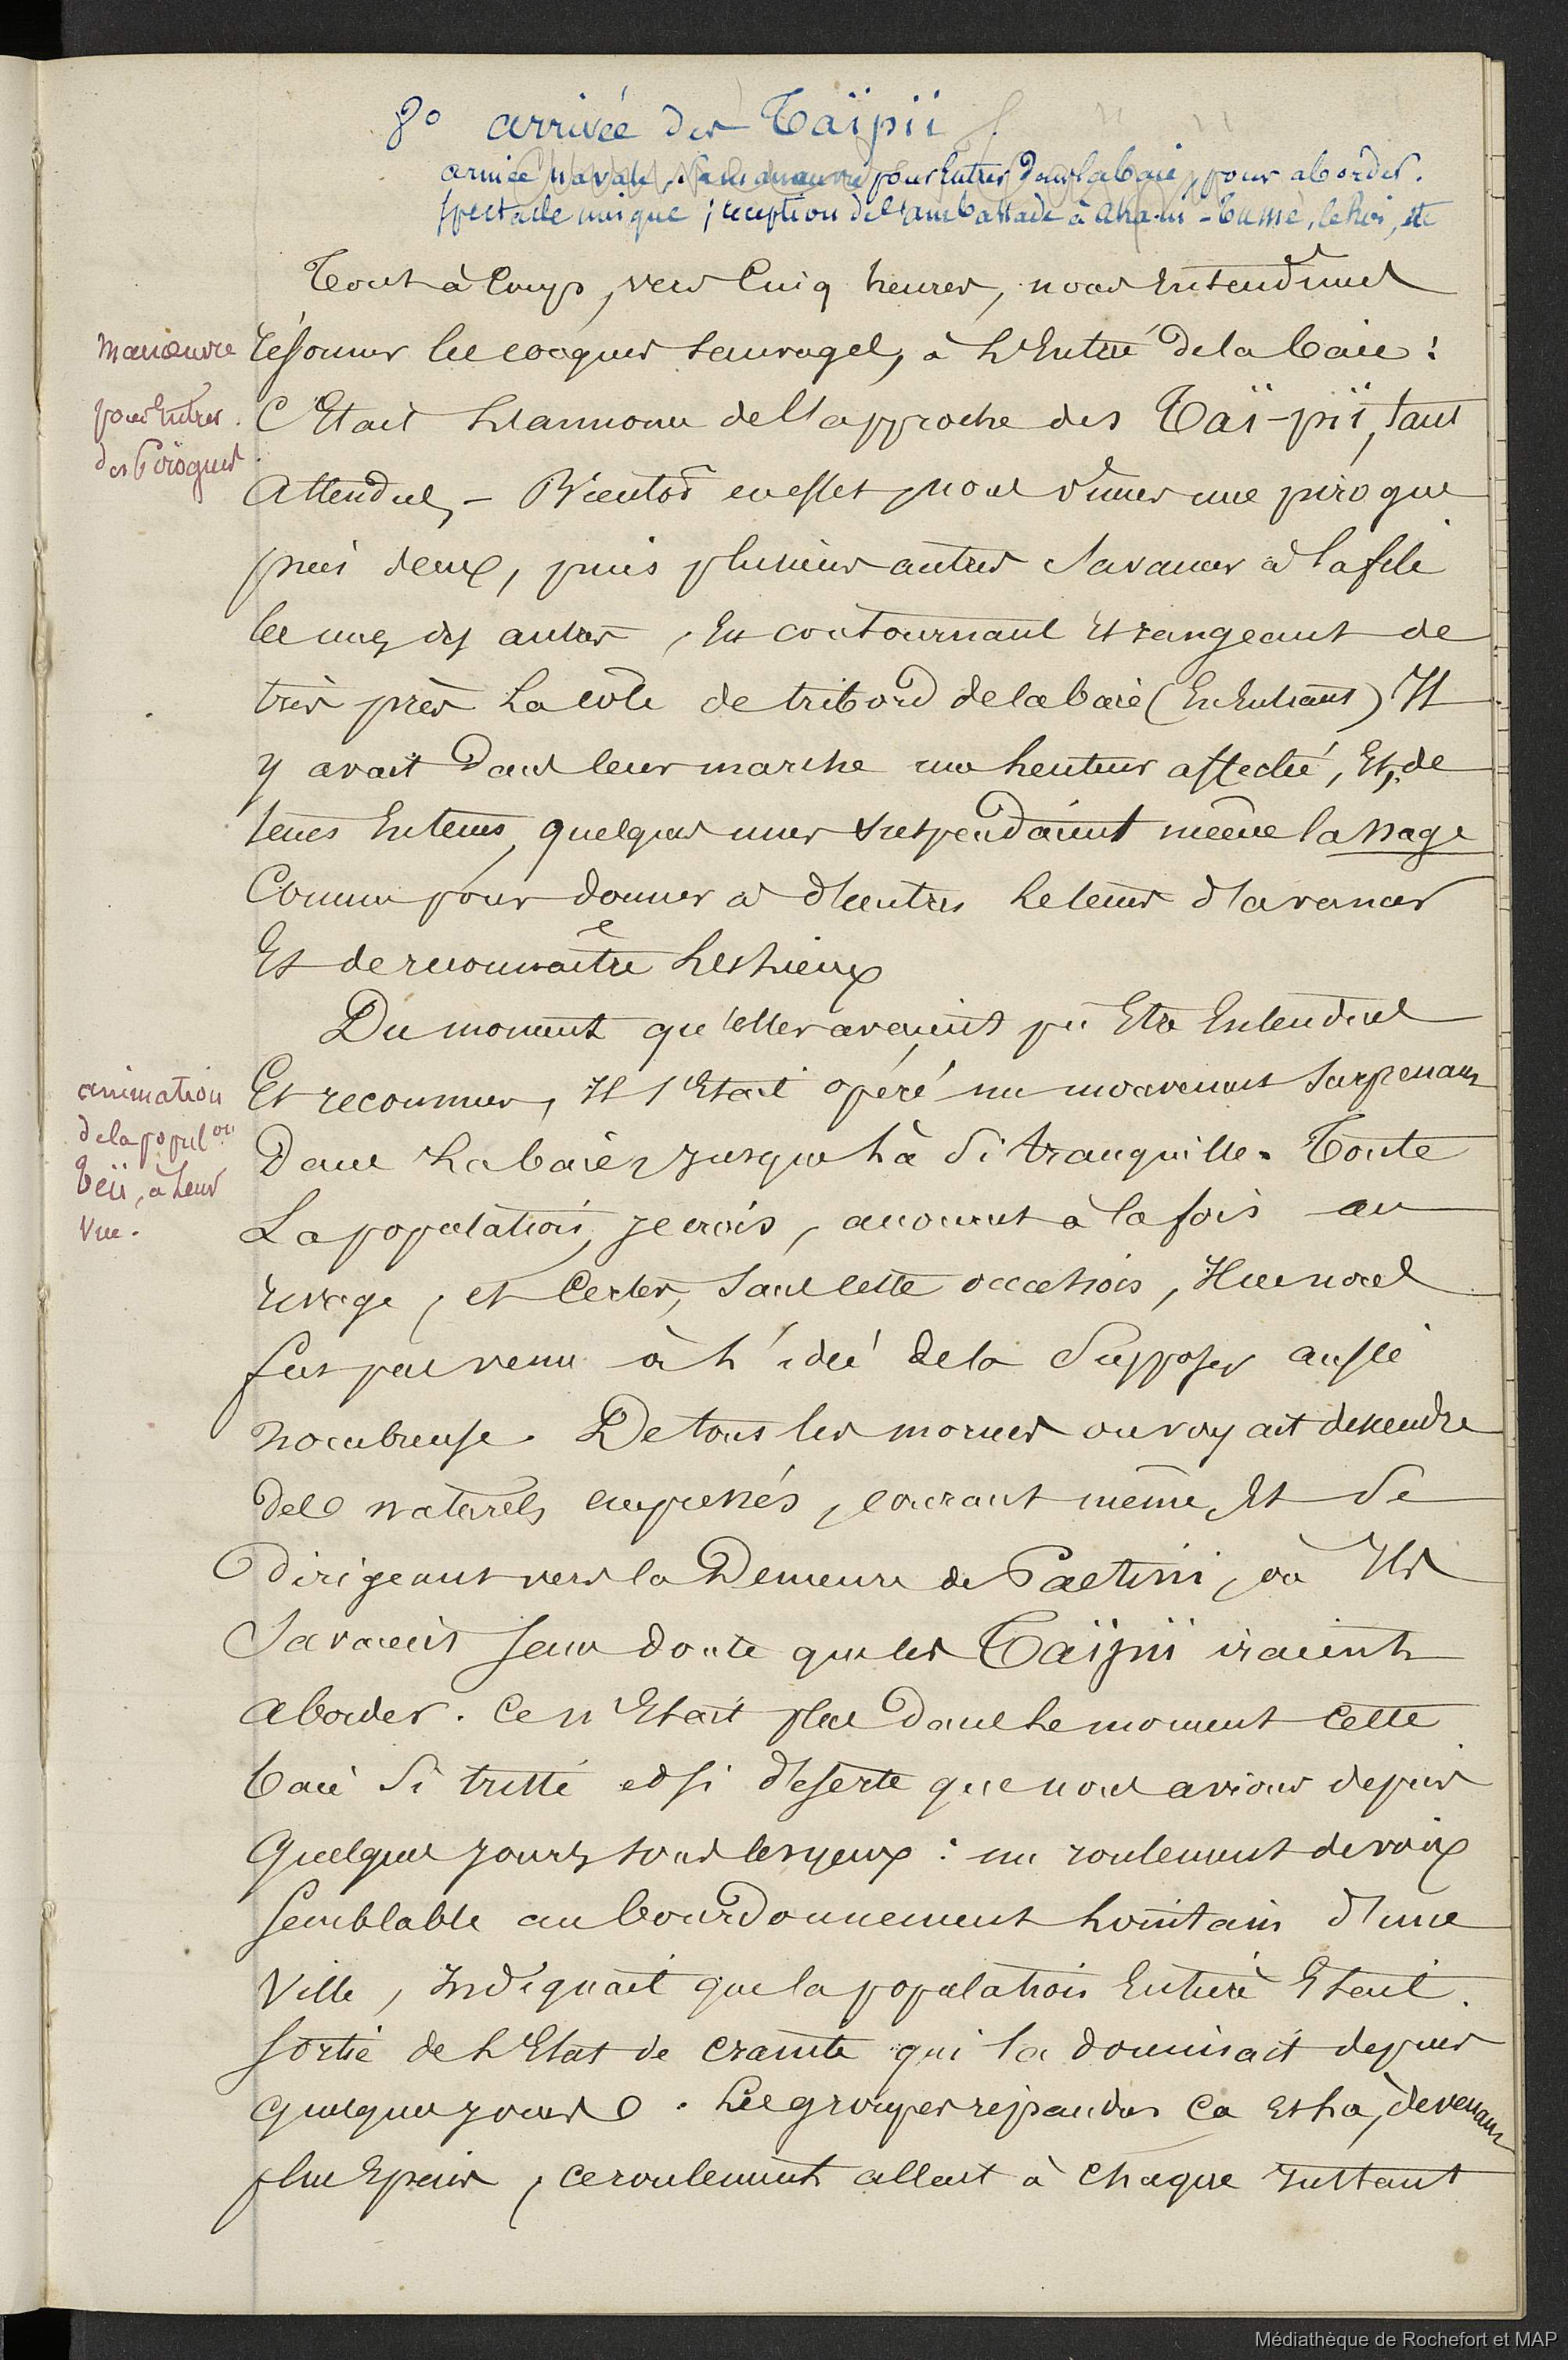 8° arrivée des Taïpii
armée navale, sa manœuvre pour Entrer dans la baie, pour aborder.
Spectacle unique ; reception de l'ambassade à Aka-ni - , le Roi, etc
Tout à Coup, vers Cinq heures, nous Entendîmes
manœuvre
pour Entrer
des Pirogues
résonner les conques sauvages, à L'Entrée de la baie !
C'Etait L'annonce de l'approche des Taï-pii, tant
Attendus, - Bientôt en effet nous vîmes une pirogue
puis deux, puis plusieurs autres s'avancer à la file
les unes des autres, En contournant Et rangeant de
très près La côte de tribord de la baie (En Entrant) Il
y avait Dans leur marche une lenteur affectée, Et, de
tems Entems, quelques unes suspendaient même la nage
Comme pour donner à d'autres Le tems d'avancer
Et de reconnaître Les Lieux
Du moment qu'elles avaient pu Etre Entendues
animation
de la popul.on
Teii, à Leur
vue.
Et reconnues, Il s'Etait opéré un mouvement surprenant
Dans La baie jusque là Si tranquille. Toute
La population, je crois, accourut à la fois au
rivage, et Certes, sans cette occasion, Il ne nous
fut pas venu à L'idée de la Supposer aussi
nombreuse. De tous les mornes on voyait descendre
des naturels empressés, courant même, Et Se
Dirigeant vers la Demeure de Paetini, où Ils
Savaient sans doute que les Taïpii iraient
aborder. Ce n'Etait plus Dans Le moment Cette
baie Si triste et si déserte que nous avions depuis
Quelques jours sous les yeux : un roulement de voix
Semblable au bourdonnement Lointain d'une
Ville, Indiquait que la population Entière Etait
Sortie de L'Etat de crainte qui la dominait depuis
quelques jours. Les groupes répandus ça Et La, devenant
plus Epais, ce roulement allait à Chaque Instant
Médiathèque de Rochefort et MAP